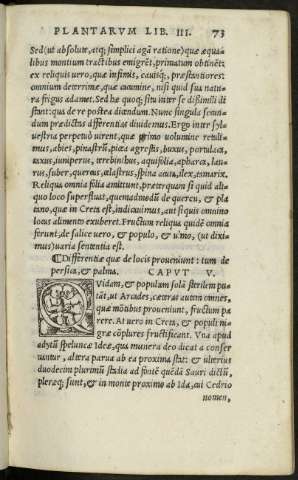 PLANTARVM LIB. III. 73
Sed (ut absolute, atq; simplici agã ratione) quæ æqua-
libus montium tractibus emigret, primatum obtinēt:
ex reliquis uero, quæ infimis, cauisq;, præstantiores:
omnium deterrimæ, quæ cacumine, nisi quid sua natu
ra frigus adamet. Sed hæ quoq; situ inter se dissimili di
stant: qua de re postea dicendum. Nunc singula secun-
dum prædictas differētias diuidemus. Ergo inter syl-
uestria perpetuò uirent, quæ primo uolumine retuli-
mus, abies, pinastrū, picea agrestis, buxus, percalaca,
taxus, iuniperus, terebinthus, aquifolia, apharca, lau-
rus, suber, quercus, ælastrus, spina acuta, ilex, tamarix.
Reliqua omnia folia amittunt, præterquam si quid ali-
quo loco superfluat, quemadmodū de quercu, & pla
tano, quæ in Creta est, indicauimus, aut si quis omnino
locus alimento exuberet. Fructum reliqua quidē omnia
ferunt: de salice uero, & populo, & ulmo, (ut dixi-
mus) uaria sententia est.
¶ Differētiæ quæ de locis proueniunt: tum de
persica, & palma. CAPVT V.
QVidam, & populum solā sterilem pu-
tāt, ut Arcades, cæteras autem omnes,
quæ mōtibus proueniunt, fructum pa
rere. At uero in Creta, & populi ni-
græ cōplures fructificant. Vna apud
adytū speluncæ Ideæ, qua munera deo dicata conser
uantur, altera parua ab ea proxima stat: & ulterius
duodecim plurimū stadia ad fontē quēdā Sauri dictū,
pleræq; sunt, & in monte proximo ab Ida, cui Cedrio
nomen,